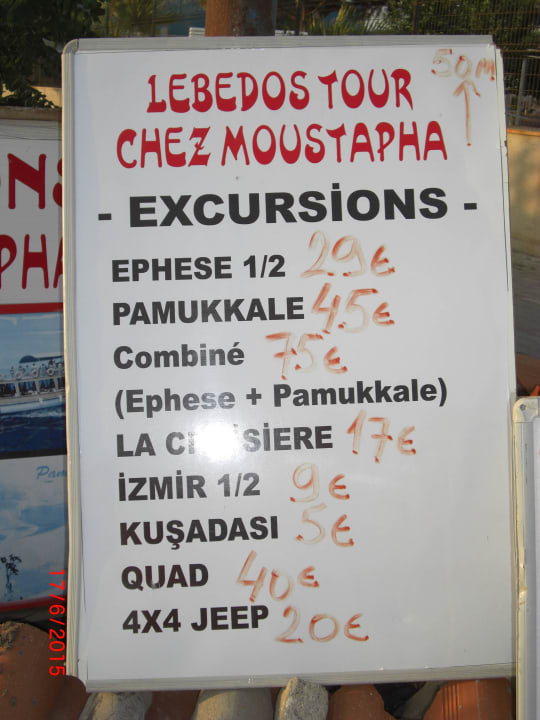 LEBEDOS TOUR
CHEZ MOUSTAPHA
50M
- EXCURSİONS -
EPHESE 1/2 29€
PAMUKKALE 45€
Combiné 75€
(Ephese + Pamukkale)
LA CROISIERE 17€
İZMİR 1/2 9€
KUŞADASI 5€
QUAD 40€
4X4 JEEP 20€
17/6/2015